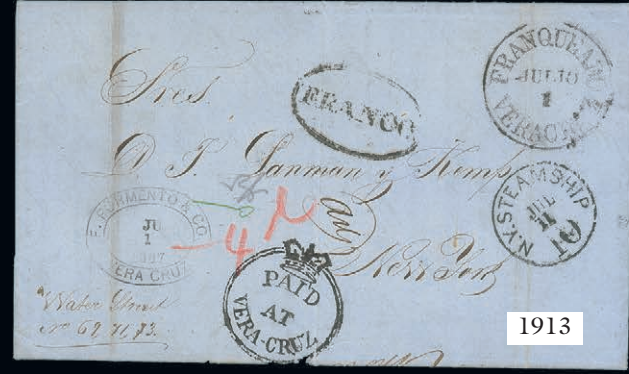 FRANQUEADO
JULIO
1
VERACRUZ
FRANCO
Sres.
D. T. Lanman y Kemp
New York
N.Y. STEAMSHIP
JUL
11
10
F. FORMENTO & CO.
JU
1
VERA CRUZ
4
PAID
AT
VERA-CRUZ
Water Street
No 69, 71, 73.
1913